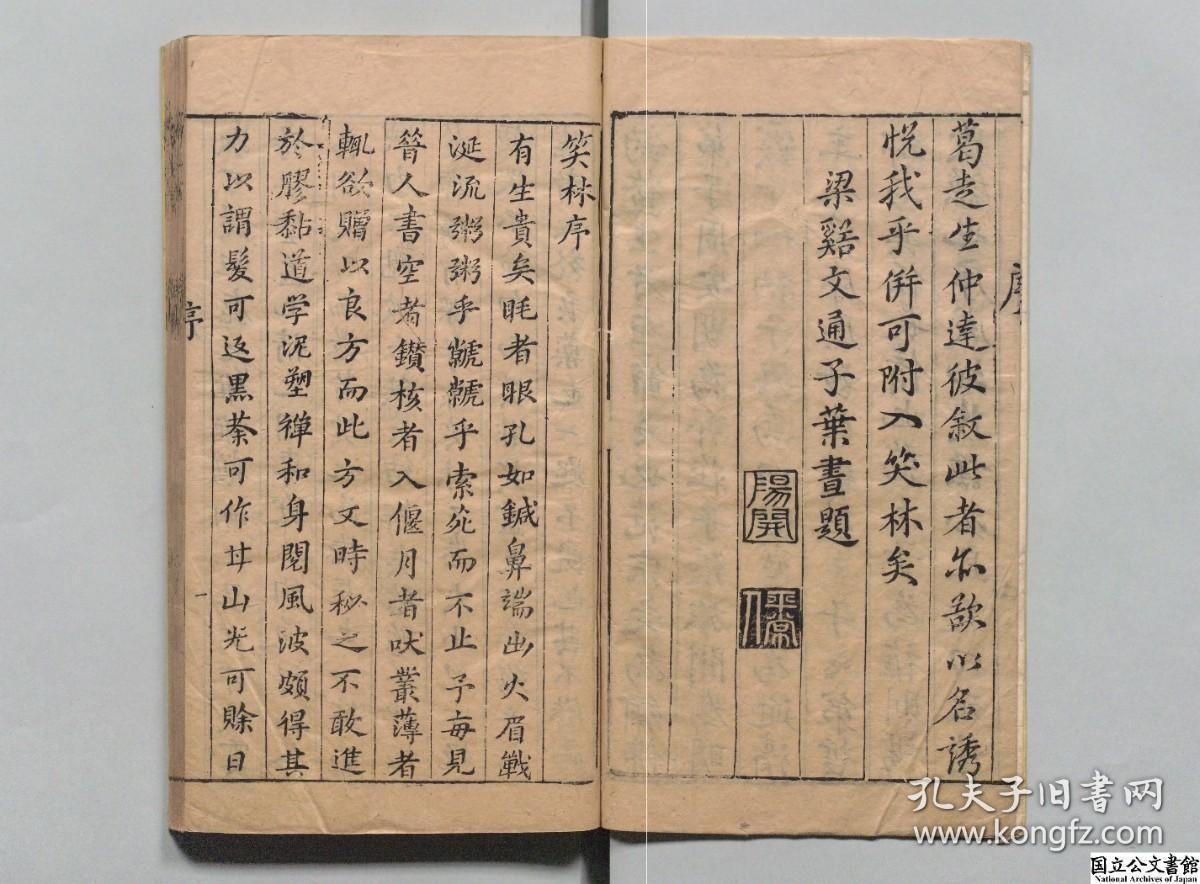 序
葛走生仲達彼敘此者亦欲以名誘
悅我乎併可附入笑林矣
梁谿文通子葉晝題
陽開
笑林序
有生貴矣眊者眼孔如鍼鼻端出火眉戰
涎流粥粥乎虩虩乎索死而不止予每見
簪人書空者鑚核者入偃月者吠叢薄者
輒欲贈以良方而此方又時秘之不敢進
於膠黏道学泥塑禅和身閱風波頗得其
力以謂髮可返黒荼可作甘山光可賒日
序
一
孔夫子旧書网
www.kongfz.com
国立公文書館
National Archives of Japan